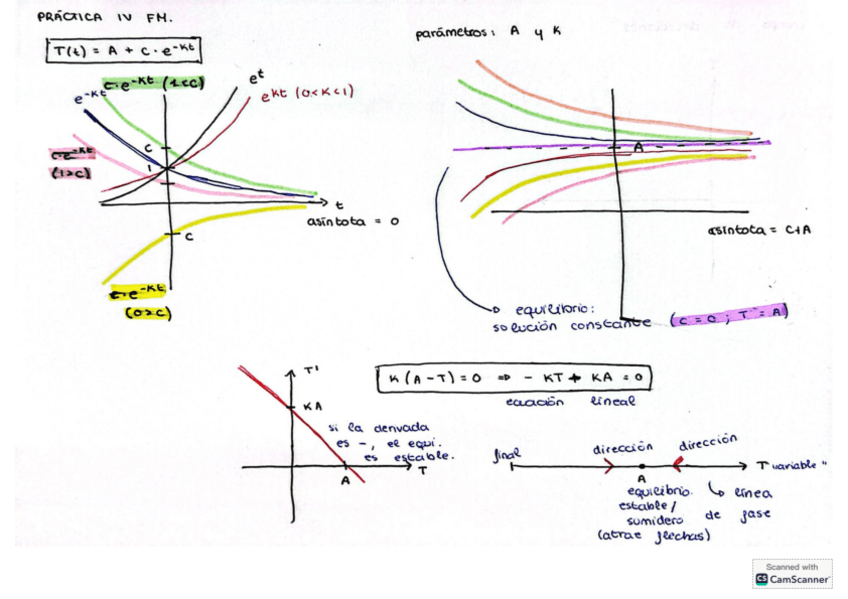 PRÁCTICA IV FM.
T(t) = A + C · e^-Kt
parámetros: A y K
C·e^-Kt (1<C)
e^t
e^-Kt
e^Kt (0<K<1)
C
C·e^-Kt
(1>C)
1
t
asíntota = 0
C
C·e^-Kt
(0>C)
A
asíntota = C+A
equilibrio:
solución constante (C = 0 ; T = A)
T'
K(A-T)=0 ⇒ - KT + KA = 0
ecuación lineal
KA
si la derivada
es -, el equi.
es estable.
T
A
final
dirección
dirección
T variable "
A
equilibrio
estable/
sumidero
(atrae flechas)
línea
de fase
Scanned with
CS CamScanner